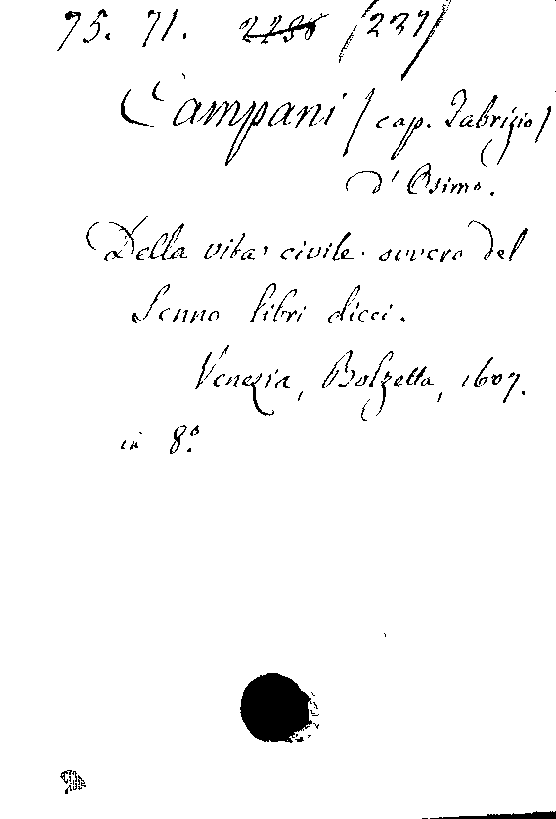 75. 71. 2238 (237)
Campani (cap. Fabrizio)
d'Osimo.
Della vita civile ovvero del
Senno libri dieci.
Venezia, Bolzetta, 1607.
in 8.º